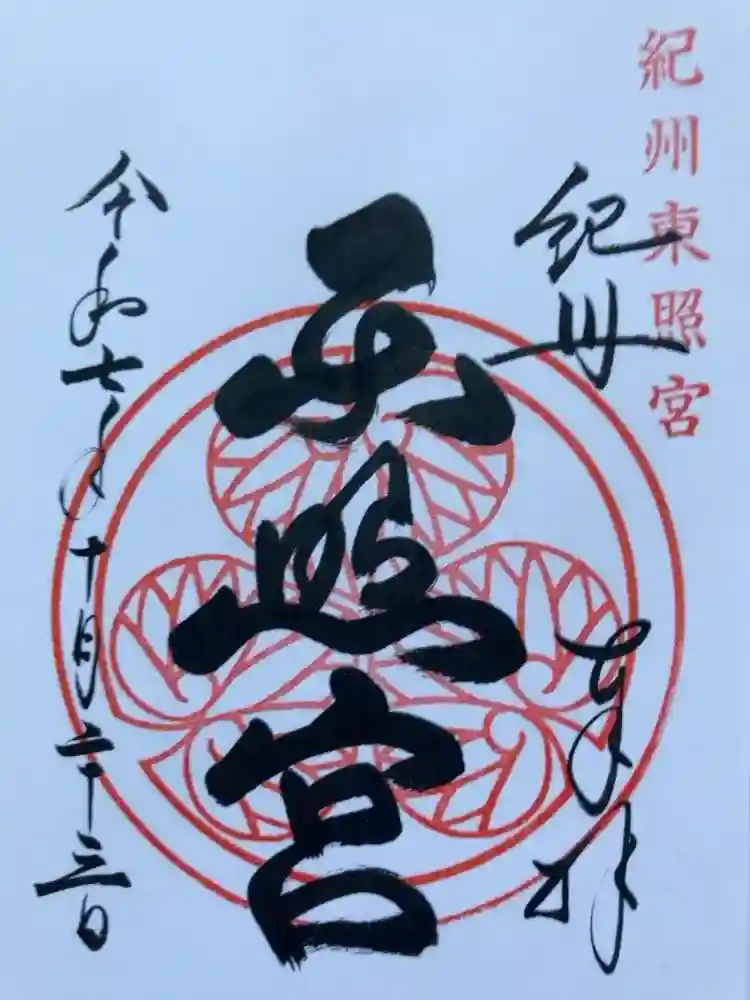 紀州東照宮
紀州
奉拝
東照宮
令和七年十月二十三日